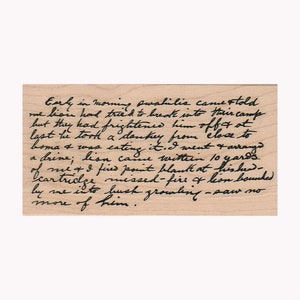 Early in morning swahilis came & told
me lion had tried to break into their camp
but they had frightened him off & at
last he took a donkey from close to
home & was eating it. I went & arranged
a drive; lion came within 10 yards
of me & I fired point blank at
cartridge missed-fire & lion bounced
by me into bush growling - saw no
more of him.